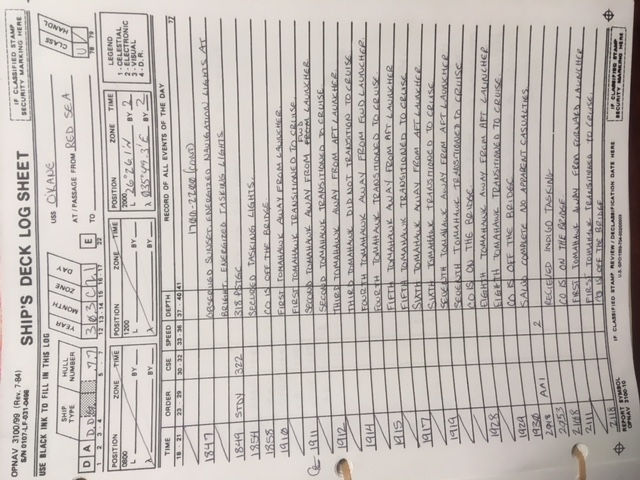 OPNAV 3100/99 (Rev. 7-84)
S/N 0107-LF-031-0498
SHIP'S DECK LOG SHEET
IF CLASSIFIED STAMP
SECURITY MARKING HERE
USE BLACK INK TO FILL IN THIS LOG
USS O'KANE
SHIP TYPE HULL NUMBER YEAR MONTH ZONE DAY
AT / PASSAGE FROM RED SEA
CLASS HANDL
D A D,D 7,7 3 03 C 2,1 E
TO
U
1 2 3-4 5 - 7 12 13-14 15 16-17 22
78 79
POSITION ZONE TIME
0800
L BY
λ BY
POSITION ZONE TIME
1200
L BY
λ BY
POSITION ZONE TIME
2000
L 26°26.1'N BY 2
λ 035°49.3'E BY 2
LEGEND
1 - CELESTIAL
2 - ELECTRONIC
3 - VISUAL
4 - D.R.
TIME ORDER CSE SPEED DEPTH RECORD OF ALL EVENTS OF THE DAY
18 - 21 23 - 29 30 - 32 33-36 37 - 40 41 77
1700-2200 (CONT)
1847 OBSERVED SUNSET. ENERGIZED NAVIGATION LIGHTS AT
BRIGHT. ENERGIZED TASKING LIGHTS
1849 STDY 322 318 PSTGC
1854 SECURED TASKING LIGHTS.
1858 CO IS OFF THE BRIDGE.
1910 FIRST TOMAHAWK AWAY FROM LAUNCHER.
FIRST TOMAHAWK TRANSITIONED TO CRUISE.
1911 SECOND TOMAHAWK AWAY FROM FWD LAUNCHER.
SECOND TOMAHAWK TRANSITIONED TO CRUISE.
1912 THIRD TOMAHAWK AWAY FROM AFT LAUNCHER.
THIRD TOMAHAWK DID NOT TRANSITION TO CRUISE
1914 FOURTH TOMAHAWK AWAY FROM FWD LAUNCHER.
FOURTH TOMAHAWK TRANSITIONED TO CRUISE.
1915 FIFTH TOMAHAWK AWAY FROM AFT LAUNCHER
FIFTH TOMAHAWK TRANSITIONED TO CRUISE.
1917 SIXTH TOMAHAWK AWAY FROM AFT LAUNCHER.
SIXTH TOMAHAWK TRANSITIONED TO CRUISE.
1919 SEVENTH TOMAHAWK AWAY FROM AFT LAUNCHER
SEVENTH TOMAHAWK TRANSITIONED TO CRUISE.
CO IS ON THE BRIDGE.
1928 EIGHTH TOMAHAWK AWAY FROM AFT LAUNCHER.
EIGHTH TOMAHAWK TRANSITIONED TO CRUISE.
CO IS OFF THE BRIDGE
1929 SALVO COMPLETE NO APPARENT CASUALTIES.
1930 AA1 2
2048 RECIEVED INDIGO TASKING
2053 CO IS ON THE BRIDGE.
2108 FIRST TOMAHAWK AWAY FROM FORWARD LAUNCHER
2111 FIRST TOMAHAWK TRANSITIONED TO CRUISE.
2118 CO IS OFF THE BRIDGE
REPORT SYMBOL
OPNAV 3100-10
IF CLASSIFIED STAMP REVIEW / DECLASSIFICATION DATE HERE
IF CLASSIFIED STAMP
SECURITY MARKING HERE